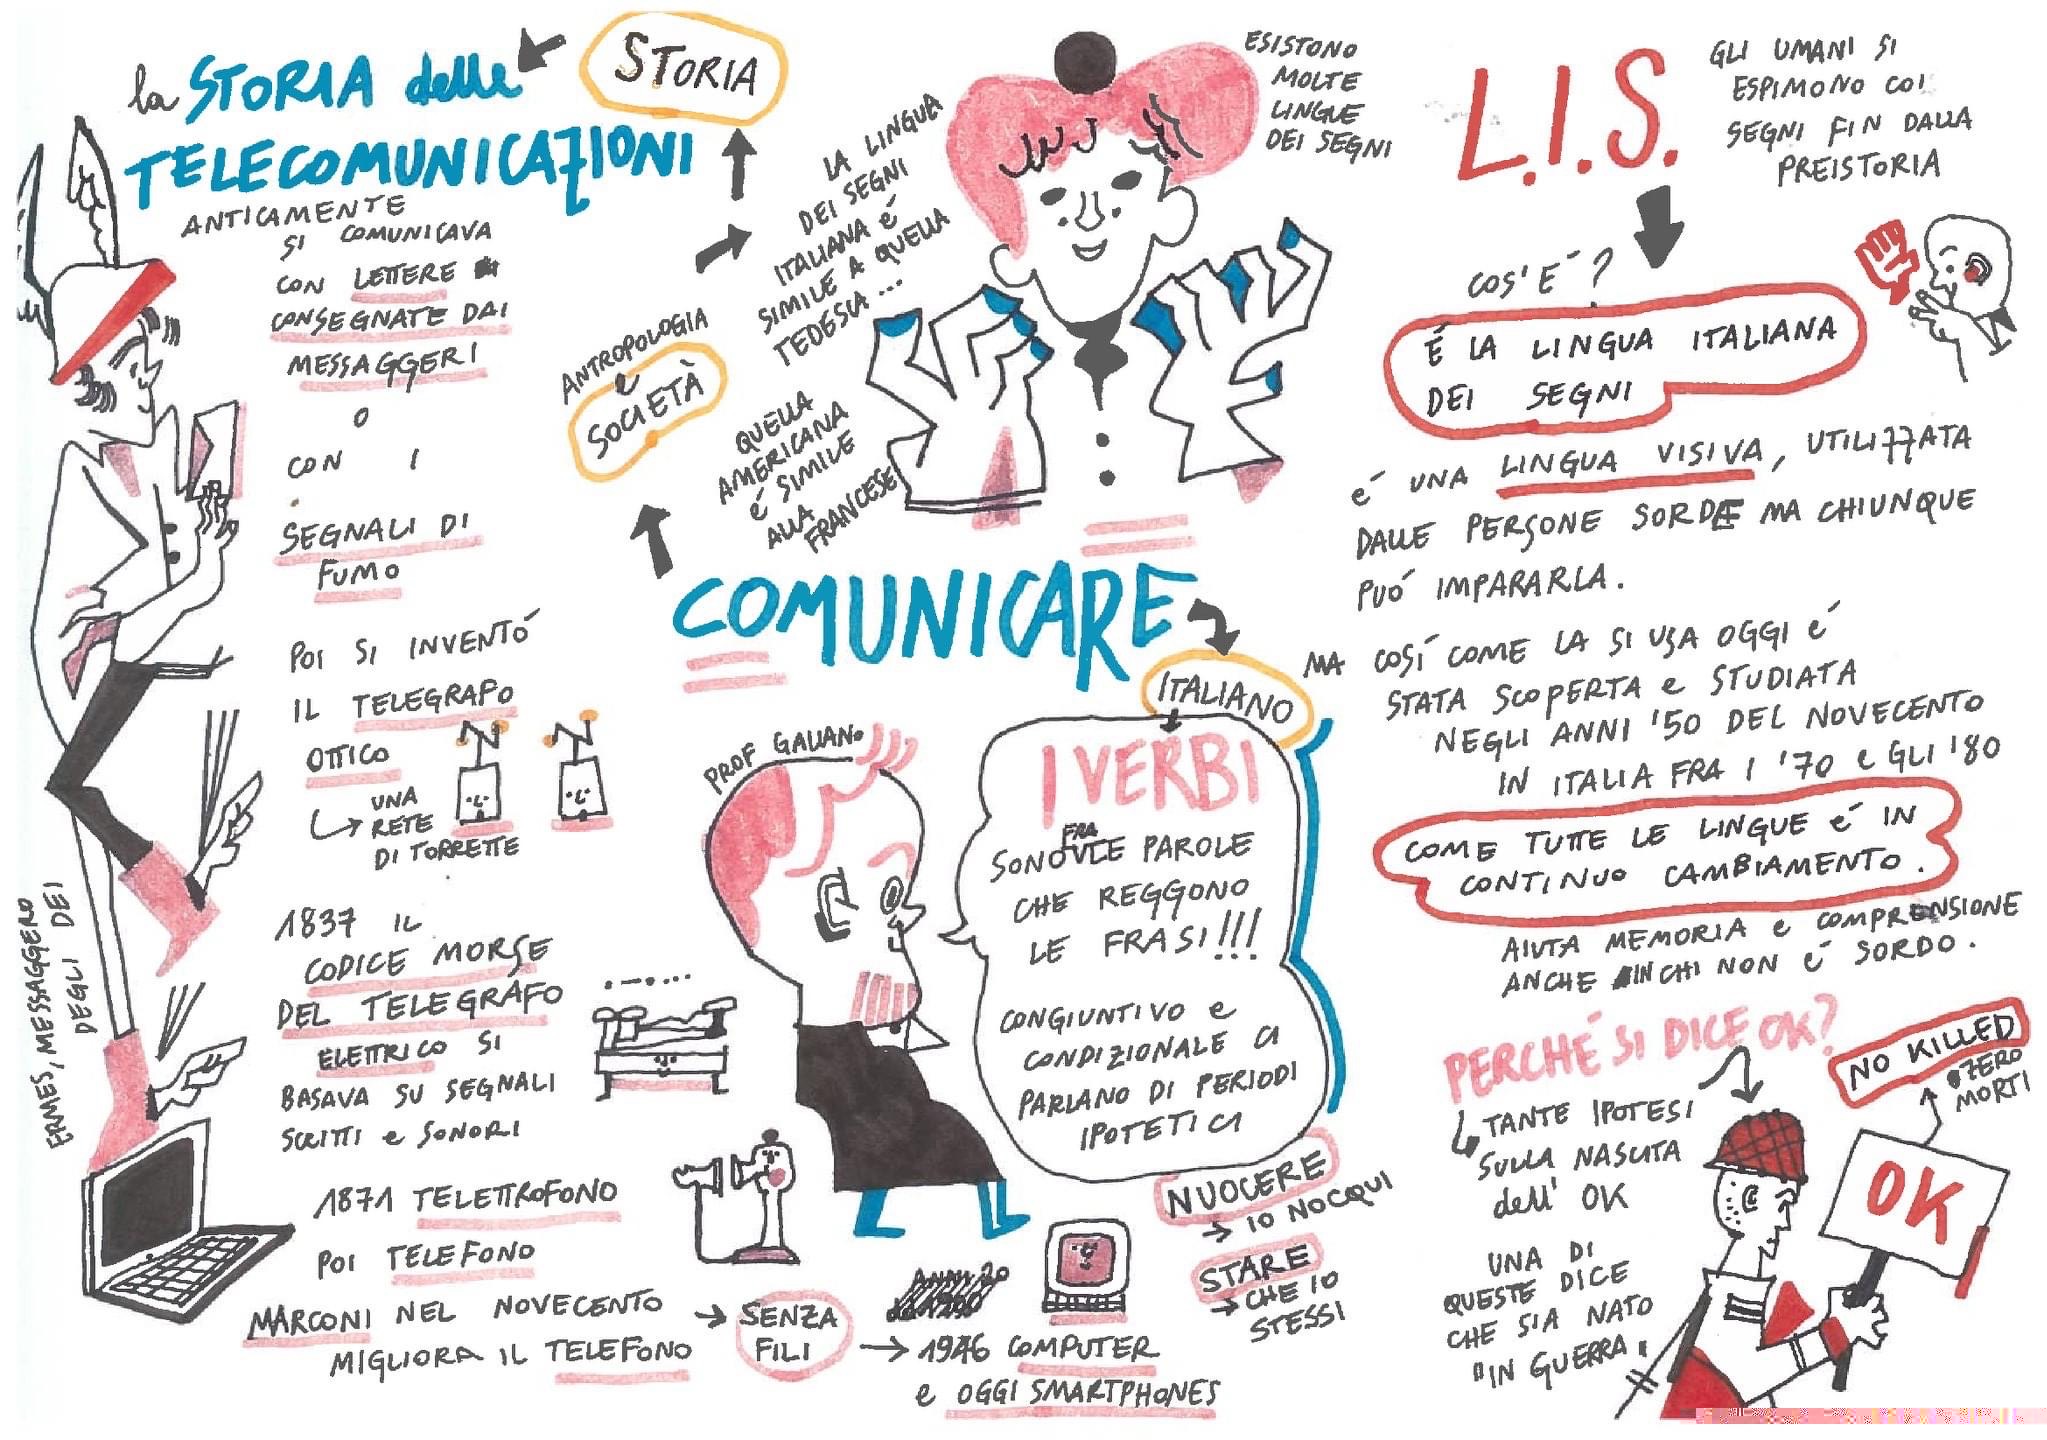 la STORIA delle
TELECOMUNICAZIONI
STORIA
ANTICAMENTE
SI COMUNICAVA
CON LETTERE
CONSEGNATE DAI
MESSAGGERI
O
CON I
SEGNALI DI
FUMO
POI SI INVENTÓ
IL TELEGRAFO
OTTICO
UNA
RETE
DI TORRETTE
1837 IL
CODICE MORSE
DEL TELEGRAFO
ELETTRICO SI
BASAVA SU SEGNALI
SCRITTI e SONORI
1871 TELETTROFONO
POI TELEFONO
MARCONI NEL NOVECENTO
MIGLIORA IL TELEFONO
SENZA
FILI
1946 COMPUTER
e OGGI SMARTPHONES
ERMES, MESSAGGERO
DEGLI DEI
ANTROPOLOGIA
e
SOCIETÀ
LA LINGUA
DEI SEGNI
ITALIANA é
SIMILE A QUELLA
TEDESCA ...
QUELLA
AMERICANA
é SIMILE
ALLA
FRANCESE
ESISTONO
MOLTE
LINGUE
DEI SEGNI
COMUNICARE
ITALIANO
PROF GALIANO
I VERBI
SONO FRA LE PAROLE
CHE REGGONO
LE FRASI!!!
CONGIUNTIVO e
CONDIZIONALE CI
PARLANO DI PERIODI
IPOTETICI
NUOCERE
IO NOCQUI
STARE
CHE IO
STESSI
L.I.S.
GLI UMANI SI
ESPIMONO COI
SEGNI FIN DALLA
PREISTORIA
COS'E'?
É LA LINGUA ITALIANA
DEI SEGNI
é UNA LINGUA VISIVA, UTILIZZATA
DALLE PERSONE SORDE MA CHIUNQUE
PUÓ IMPARARLA.
MA COSÍ COME LA SI USA OGGI é
STATA SCOPERTA e STUDIATA
NEGLI ANNI '50 DEL NOVECENTO
IN ITALIA FRA I '70 e GLI '80
COME TUTTE LE LINGUE é IN
CONTINUO CAMBIAMENTO.
AIUTA MEMORIA e COMPRENSIONE
ANCHE IN CHI NON é SORDO.
PERCHÉ SI DICE OK?
TANTE IPOTESI
SULLA NASCITA
dell' OK
UNA DI
QUESTE DICE
CHE SIA NATO
"IN GUERRA"
NO KILLED
ZERO
MORTI
OK